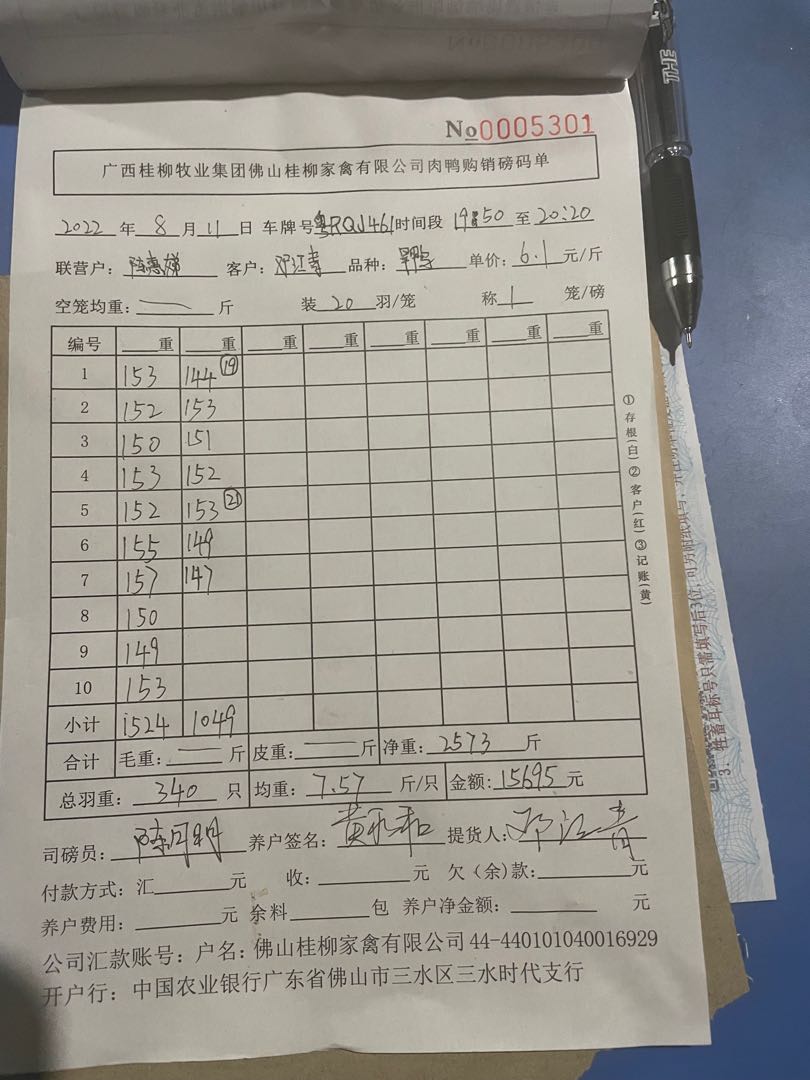 No0005301
广西桂柳牧业集团佛山桂柳家禽有限公司肉鸭购销磅码单
2022 年 8 月 11 日 车牌号粤RQJ461时间段 19:50 至 20:20
联营户: 陈惠娣 客户: 邓江青 品种: 单价: 6.1 元/斤
空笼均重: 斤 装 20 羽/笼 称 1 笼/磅
编号 重 重 重 重 重 重 重 重
1 153 144 (19)
2 152 153
3 150 151
4 153 152
5 152 153 (21)
6 155 149
7 157 147
8 150
9 149
10 153
小计 1524 1049
合计 毛重: 斤 皮重: 斤 净重: 2573 斤
总羽重: 340 只 均重: 7.57 斤/只 金额: 15695 元
司磅员: 养户签名: 黄永和 提货人: 邓江青
付款方式: 汇 元 收: 元 欠(余)款: 元
养户费用: 元 余料 包 养户净金额: 元
公司汇款账号: 户名: 佛山桂柳家禽有限公司 44-440101040016929
开户行: 中国农业银行广东省佛山市三水区三水时代支行
①存根(白)②客户(红)③记账(黄)
3. 牲畜耳标号只需填写后3位, 可另附纸填写
THE